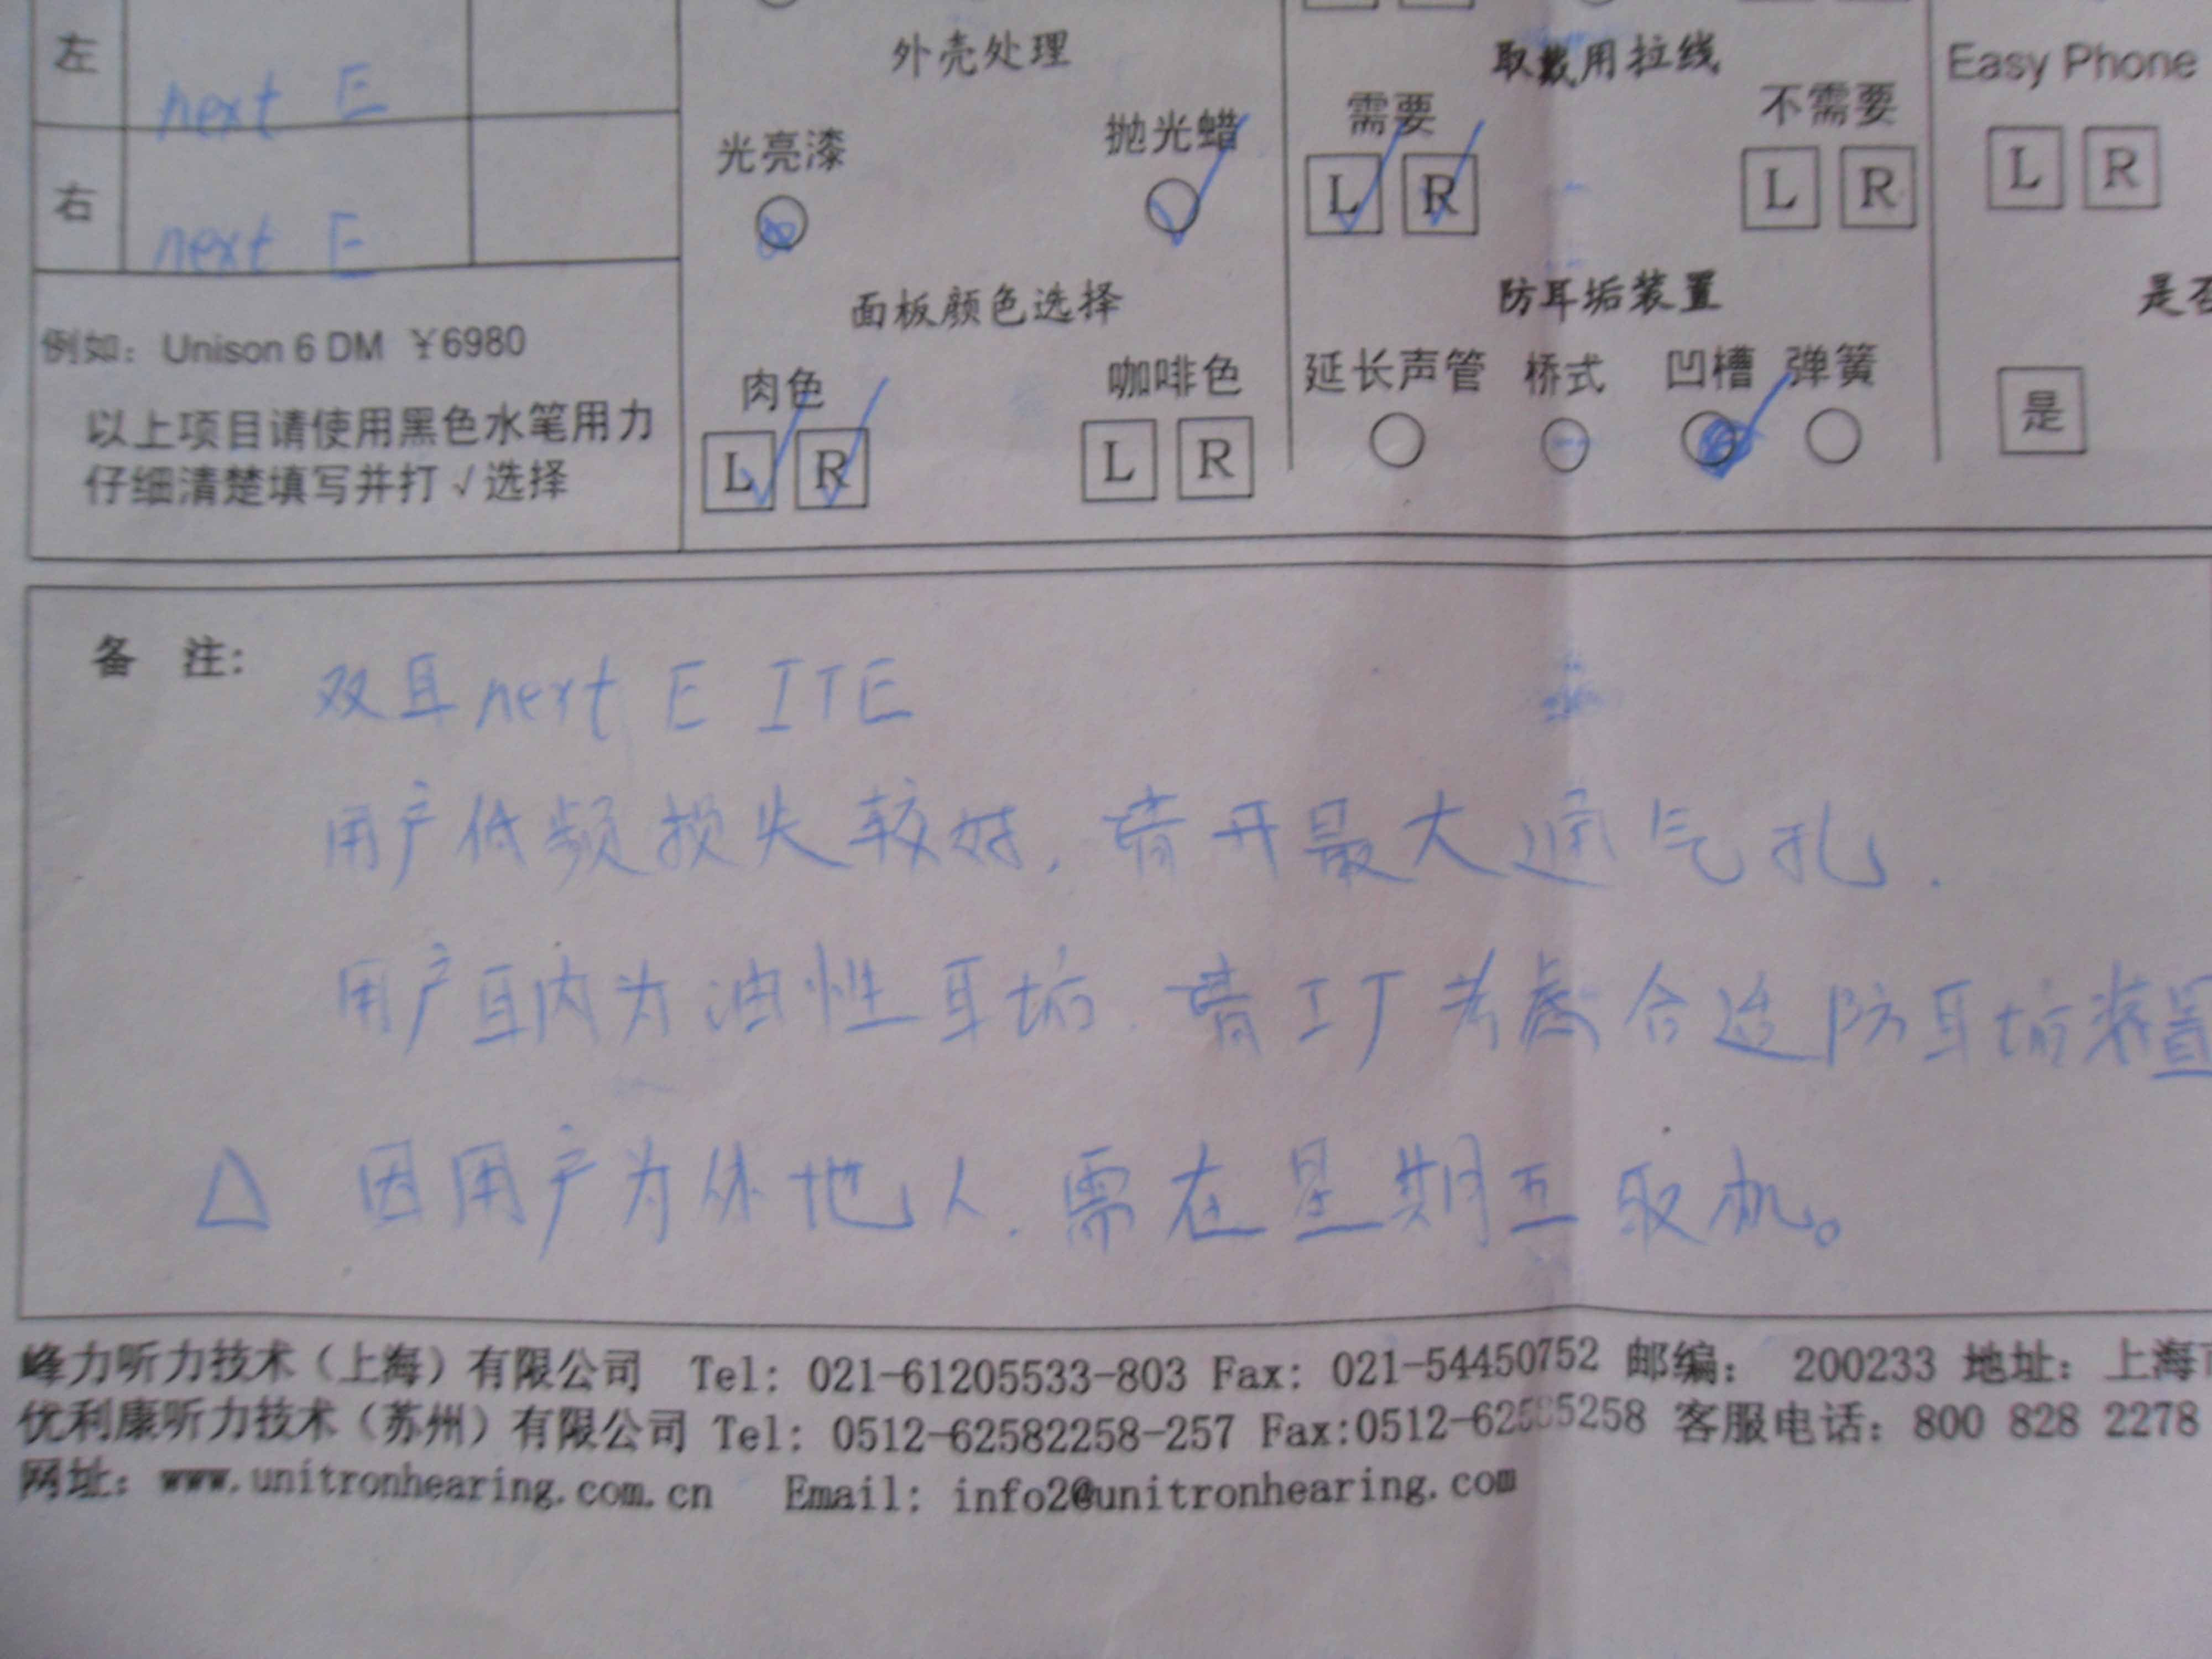 左 next E
右 next E
例如：Unison 6 DM ￥6980
以上项目请使用黑色水笔用力
仔细清楚填写并打√选择
外壳处理
光亮漆 抛光蜡
面板颜色选择
肉色 咖啡色
L R L R
取戴用拉线
需要 不需要
L R L R
防耳垢装置
延长声管 桥式 凹槽 弹簧
Easy Phone
L R
是否
是
备 注：
双耳next E ITE
用户低频损失较好，请开最大通气孔.
用户耳内为油性耳垢.请工厂考虑合适防耳垢装置
△ 因用户为外地人.需在星期五取机。
峰力听力技术（上海）有限公司 Tel: 021-61205533-803 Fax: 021-54450752 邮编： 200233 地址：上海市
优利康听力技术（苏州）有限公司 Tel: 0512-62582258-257 客服电话：800 828 2278
网址：www.unitronhearing.com.cn Email: info2@unitronhearing.com